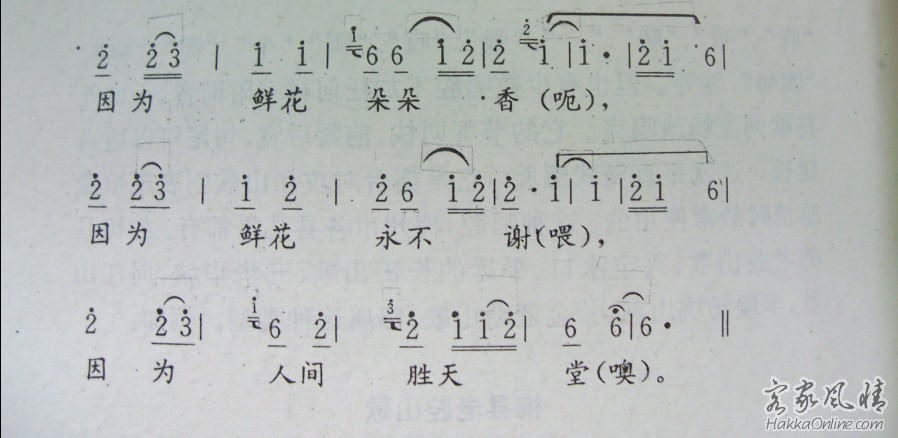 2̇ 2̇ 3̇ | 1̇ 1̇ | 6 6 1̇ 2̇ | 2̇ 1̇ | 1̇ · | 2̇ 1̇ 6 |
因为 鲜花 朵朵 · 香(呃),
2̇ 2̇ 3̇ | 1̇ 2̇ | 2̇ 6 1̇ 2̇ | 2̇ · 1̇ | 1̇ | 2̇ 1̇ 6 |
因为 鲜花 永不 谢(喂),
2̇ 2̇ 3̇ | 6 2̇ | 2̇ 1̇ 1̇ 2̇ | 6 6 | 6 · ‖
因 为 人间 胜天 堂(噢)。
客家风情
HakkaOnline.com